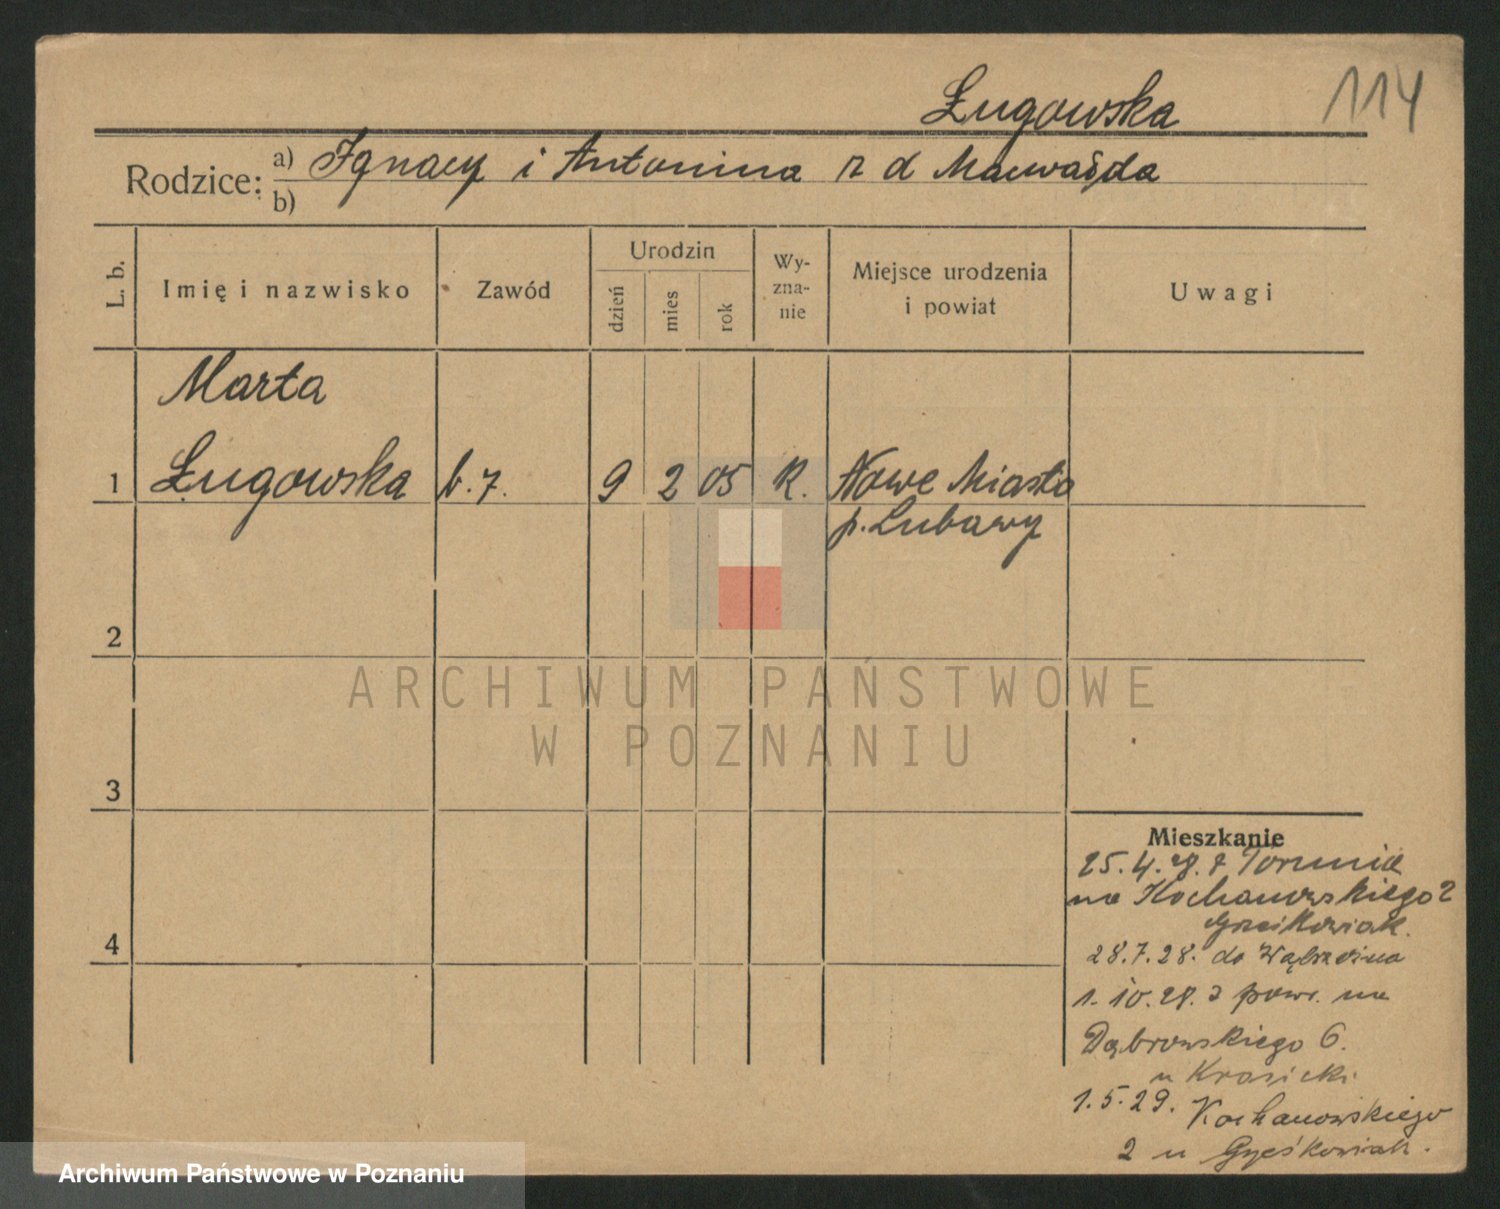 Ługowska 114
Rodzice: a) Ignacy i Antonina z d
b)
L. b. Imię i nazwisko Zawód Urodzin dzień mies rok Wyznanie Miejsce urodzenia i powiat Uwagi
Marta
1 Ługowska b. z. 9 2 05 R. Nowe Miasto
p. Lubawy
2
ARCHIWUM PAŃSTWOWE
W POZNANIU
3
Mieszkanie
25.4.28. z Torunia
na Kochanowskiego 2
4
28.7.28. do Wąbrzeźna
1.10.28. powr. na
Dąbrowskiego 6.
u Krasicki.
1.5.29. Kochanowskiego
2 u Grześkowiak.
Archiwum Państwowe w Poznaniu